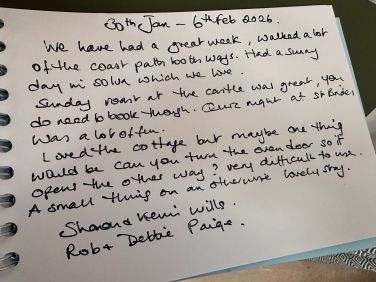 30th Jan - 6th Feb 2026.
We have had a great week, walked a lot
of the coast path both ways. Had a sunny
day in Solva which we love.
Sunday roast at the castle was great, you
do need to book though. Quiz night at St Brides
was a lot of fun.
Loved the cottage but maybe one thing
would be can you turn the oven door so it
opens the other way? very difficult to use.
A small thing on an otherwise lovely stay.
Sharon & Kevin Wills.
Rob + Debbie Paige.